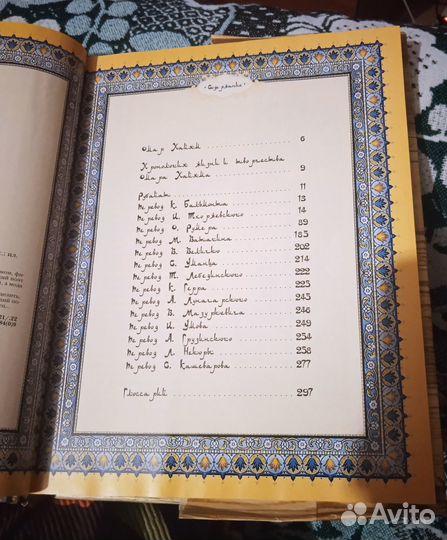 Содержание
Омар Хайям 6
Хронология жизни и творчества
Омара Хайяма 9
Рубайат 11
Перевод К. Бальмонта 13
Перевод И. Тхоржевского 14
Перевод О. Румера 89
Перевод М. Ватагина 185
Перевод В. Величко 202
Перевод С. Уманца 214
Перевод Т. Лебединского 222
Перевод К. Герра 225
Перевод А. Луначарского 245
Перевод В. Мазуркевича 246
Перевод И. Умова 249
Перевод А. Грузинского 254
Перевод Л. Некоры 258
Перевод С. Кашеварова 277
Глоссарий 297
21/.22
84(0)9
Avito